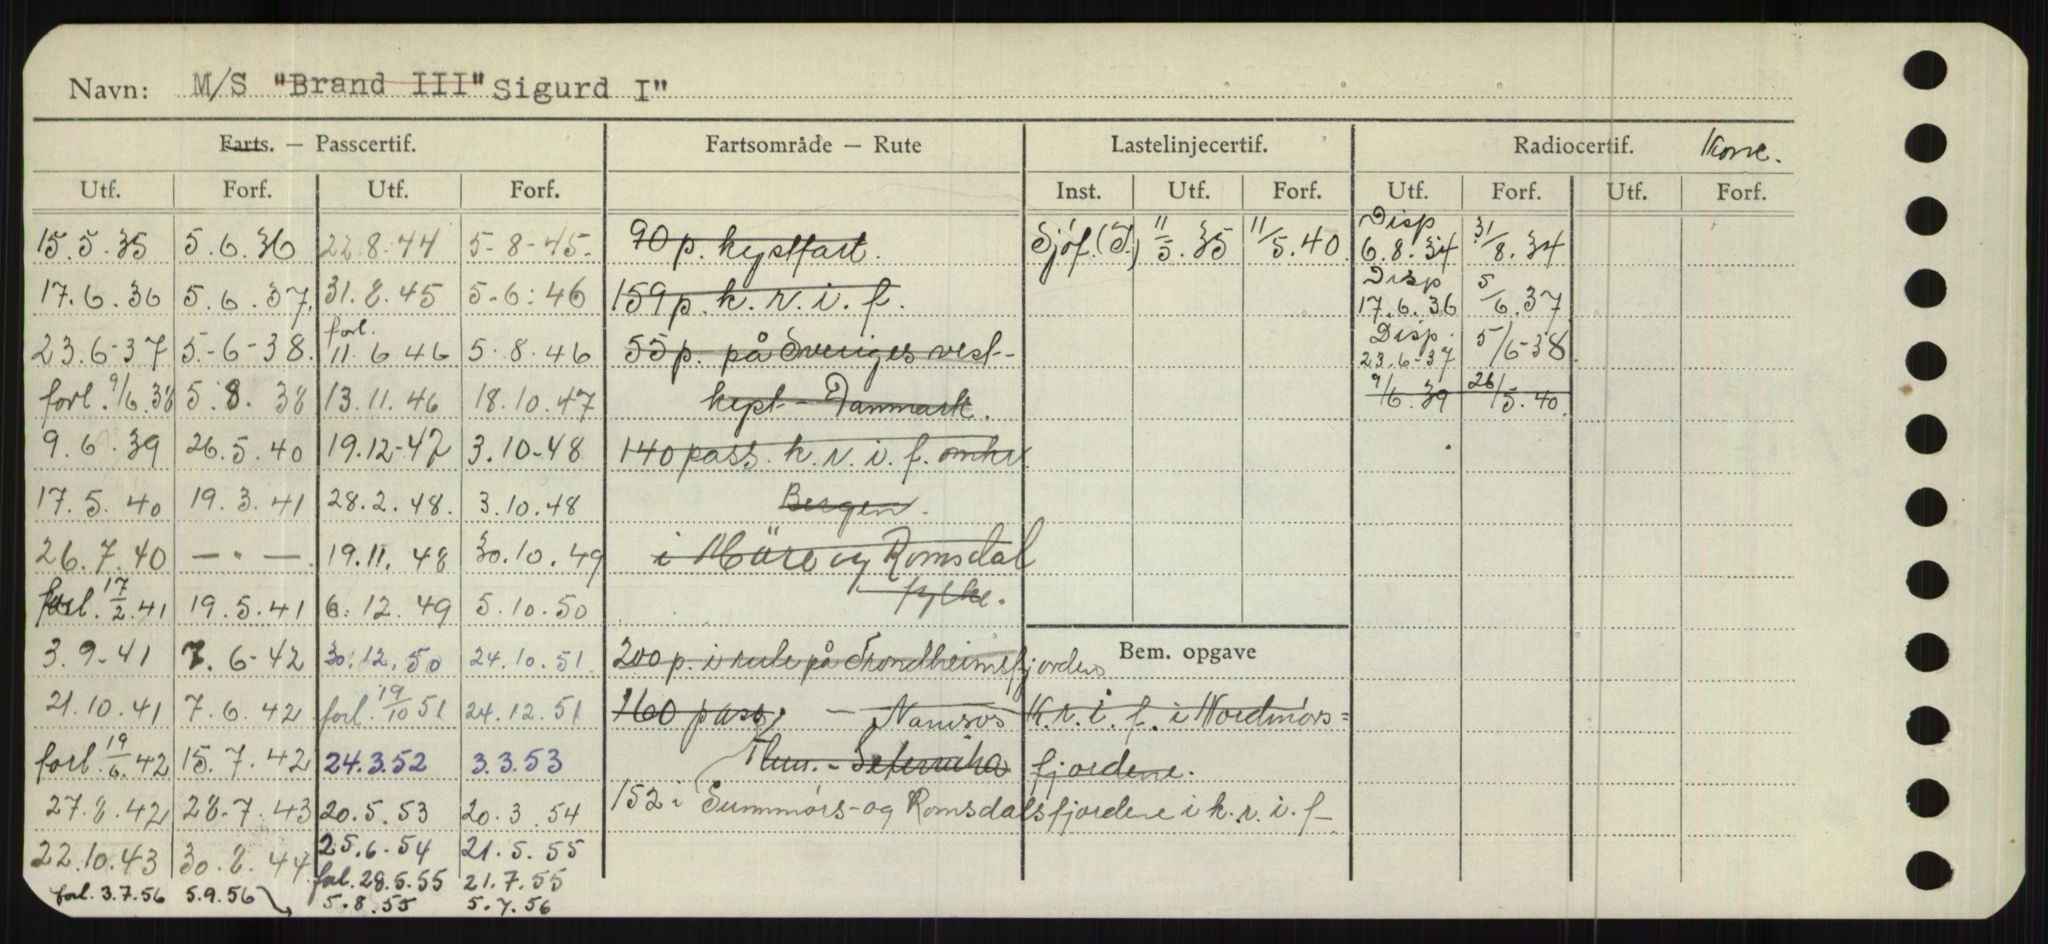 Navn: M/S "Brand III" Sigurd I"
Farts. — Passcertif. Fartsområde — Rute Lastelinjecertif. Radiocertif.
Utf. Forf. Utf. Forf. Inst. Utf. Forf. Utf. Forf. Utf. Forf.
15.5.35 5.6.36 22.8.44 5-8-45. 90 p. kystfart. Sjöf.(T.) 11/5.35 11/5.40 Disp 6.8.34 31/8.34
17.6.36 5.6.37. 31.8.45 5-6:46 159 p. k.r.i.f. Disp 17.6.36 5/6.37
23.6-37 5.-6-38. forl. 11.6.46 5.8.46 55 p. på Sveriges vest- Disp. 23.6-37 5/6-38
forl. 9/6.38 5.8.38 13.11.46 18.10.47 kyst - Danmark. 9/6.39 26/5.40.
9.6.39 26.5.40 19.12-47 3.10-48 140 pass. k.r.i.f. omkr.
17.5.40 19.3.41 28.2.48. 3.10.48 Bergen.
26.7.40 — " — 19.11.48 30.10.49 i Möre og Romsdal
forl. 17/2.41 19.5.41 6.12.49 5.10.50 fylke.
3.9-41 7.6-42 30.12.50 24.10.51. 200 p. i rute på Trondheimsfjorden Bem. opgave
21.10.41 7.6.42 forl. 19/10 51 24.12.51 160 pass. — Namsos K.r.i.f. i Nordmørs=
forl. 19/6.42 15.7.42 24.3.52 3.3.53 fjordene.
27.8.42 28.7.43 20.5.53 20.3.54 152 i Sunnmørs- og Romsdalsfjordene i k.r.i.f.
22.10.43 30.8.44 25.6-54 21.5.55
forl. 28.5.55 21.7.55
forl. 3.7.56 5.9.56 5.8.55 5.7.56